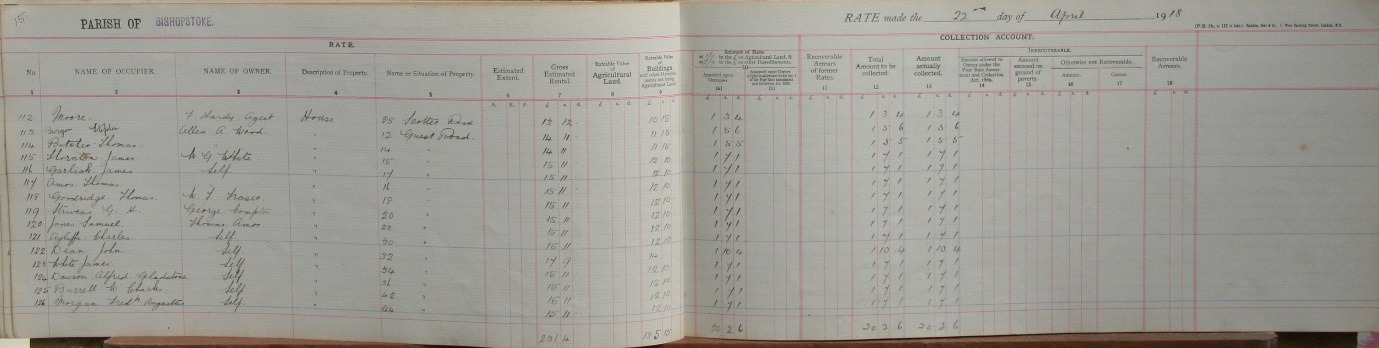 15
PARISH OF BISHOPSTOKE.
RATE made the 22nd day of April 1918
RATE.
COLLECTION ACCOUNT.
No. NAME OF OCCUPIER. NAME OF OWNER. Description of Property. Name or Situation of Property. Estimated Extent. Gross Estimated Rental. Rateable Value of Agricultural Land. Rateable Value of Buildings Amount of Rate. Recoverable Arrears of former Rates. Total Amount to be collected. Amount actually collected. IRRECOVERABLE. Recoverable Arrears.
Amount excused on ground of poverty. Otherwise not Recoverable.
Amount. Causes.
1 2 3 4 5 6 7 8 9 10 (a) (b) 11 12 13 14 15 16 17 18
112 Moore F Hards Agent House 28 Scotts Road 13 12 10 15 1 3 4 1 3 4 1 3 4
113 Allen A Wood " 12 Guest Road 14 11 11 15 1 5 6 1 5 6 1 5 6
114 Butcher Thomas " " 14 " 14 11 11 15 1 5 5 1 5 5 1 5 5
115 Thornton James W G White " 15 " 15 11 12 10 1 7 1 1 7 1 1 7 1
116 Garlick James Self " 17 " 15 11 12 10 1 7 1 1 7 1 1 7 1
117 Amos Thomas " 16 " 15 11 12 10 1 7 1 1 7 1 1 7 1
118 Goodridge Thomas W F Fraser " 18 " 15 11 12 10 1 7 1 1 7 1 1 7 1
119 Strivens G. H. George Compton " 20 " 15 11 12 10 1 7 1 1 7 1 1 7 1
120 Jones Samuel Thomas Amos " 22 " 15 11 12 10 1 7 1 1 7 1 1 7 1
121 Ayliffe Charles Self " 30 " 15 11 12 10 1 7 1 1 7 1 1 7 1
122 Dean John Self " 32 " 17 9 14 1 10 4 1 10 4 1 10 4
123 White James Self " 34 " 15 11 12 10 1 7 1 1 7 1 1 7 1
124 Dawson Alfred Gladstone Self " 36 " 15 11 12 10 1 7 1 1 7 1 1 7 1
125 Burrell W Charles Self " 42 " 15 11 12 10 1 7 1 1 7 1 1 7 1
126 Morgan Fredk Augustus Self " 44 " 15 11 12 10 1 7 1 1 7 1 1 7 1
231 4 20 2 6 20 2 6 20 2 6